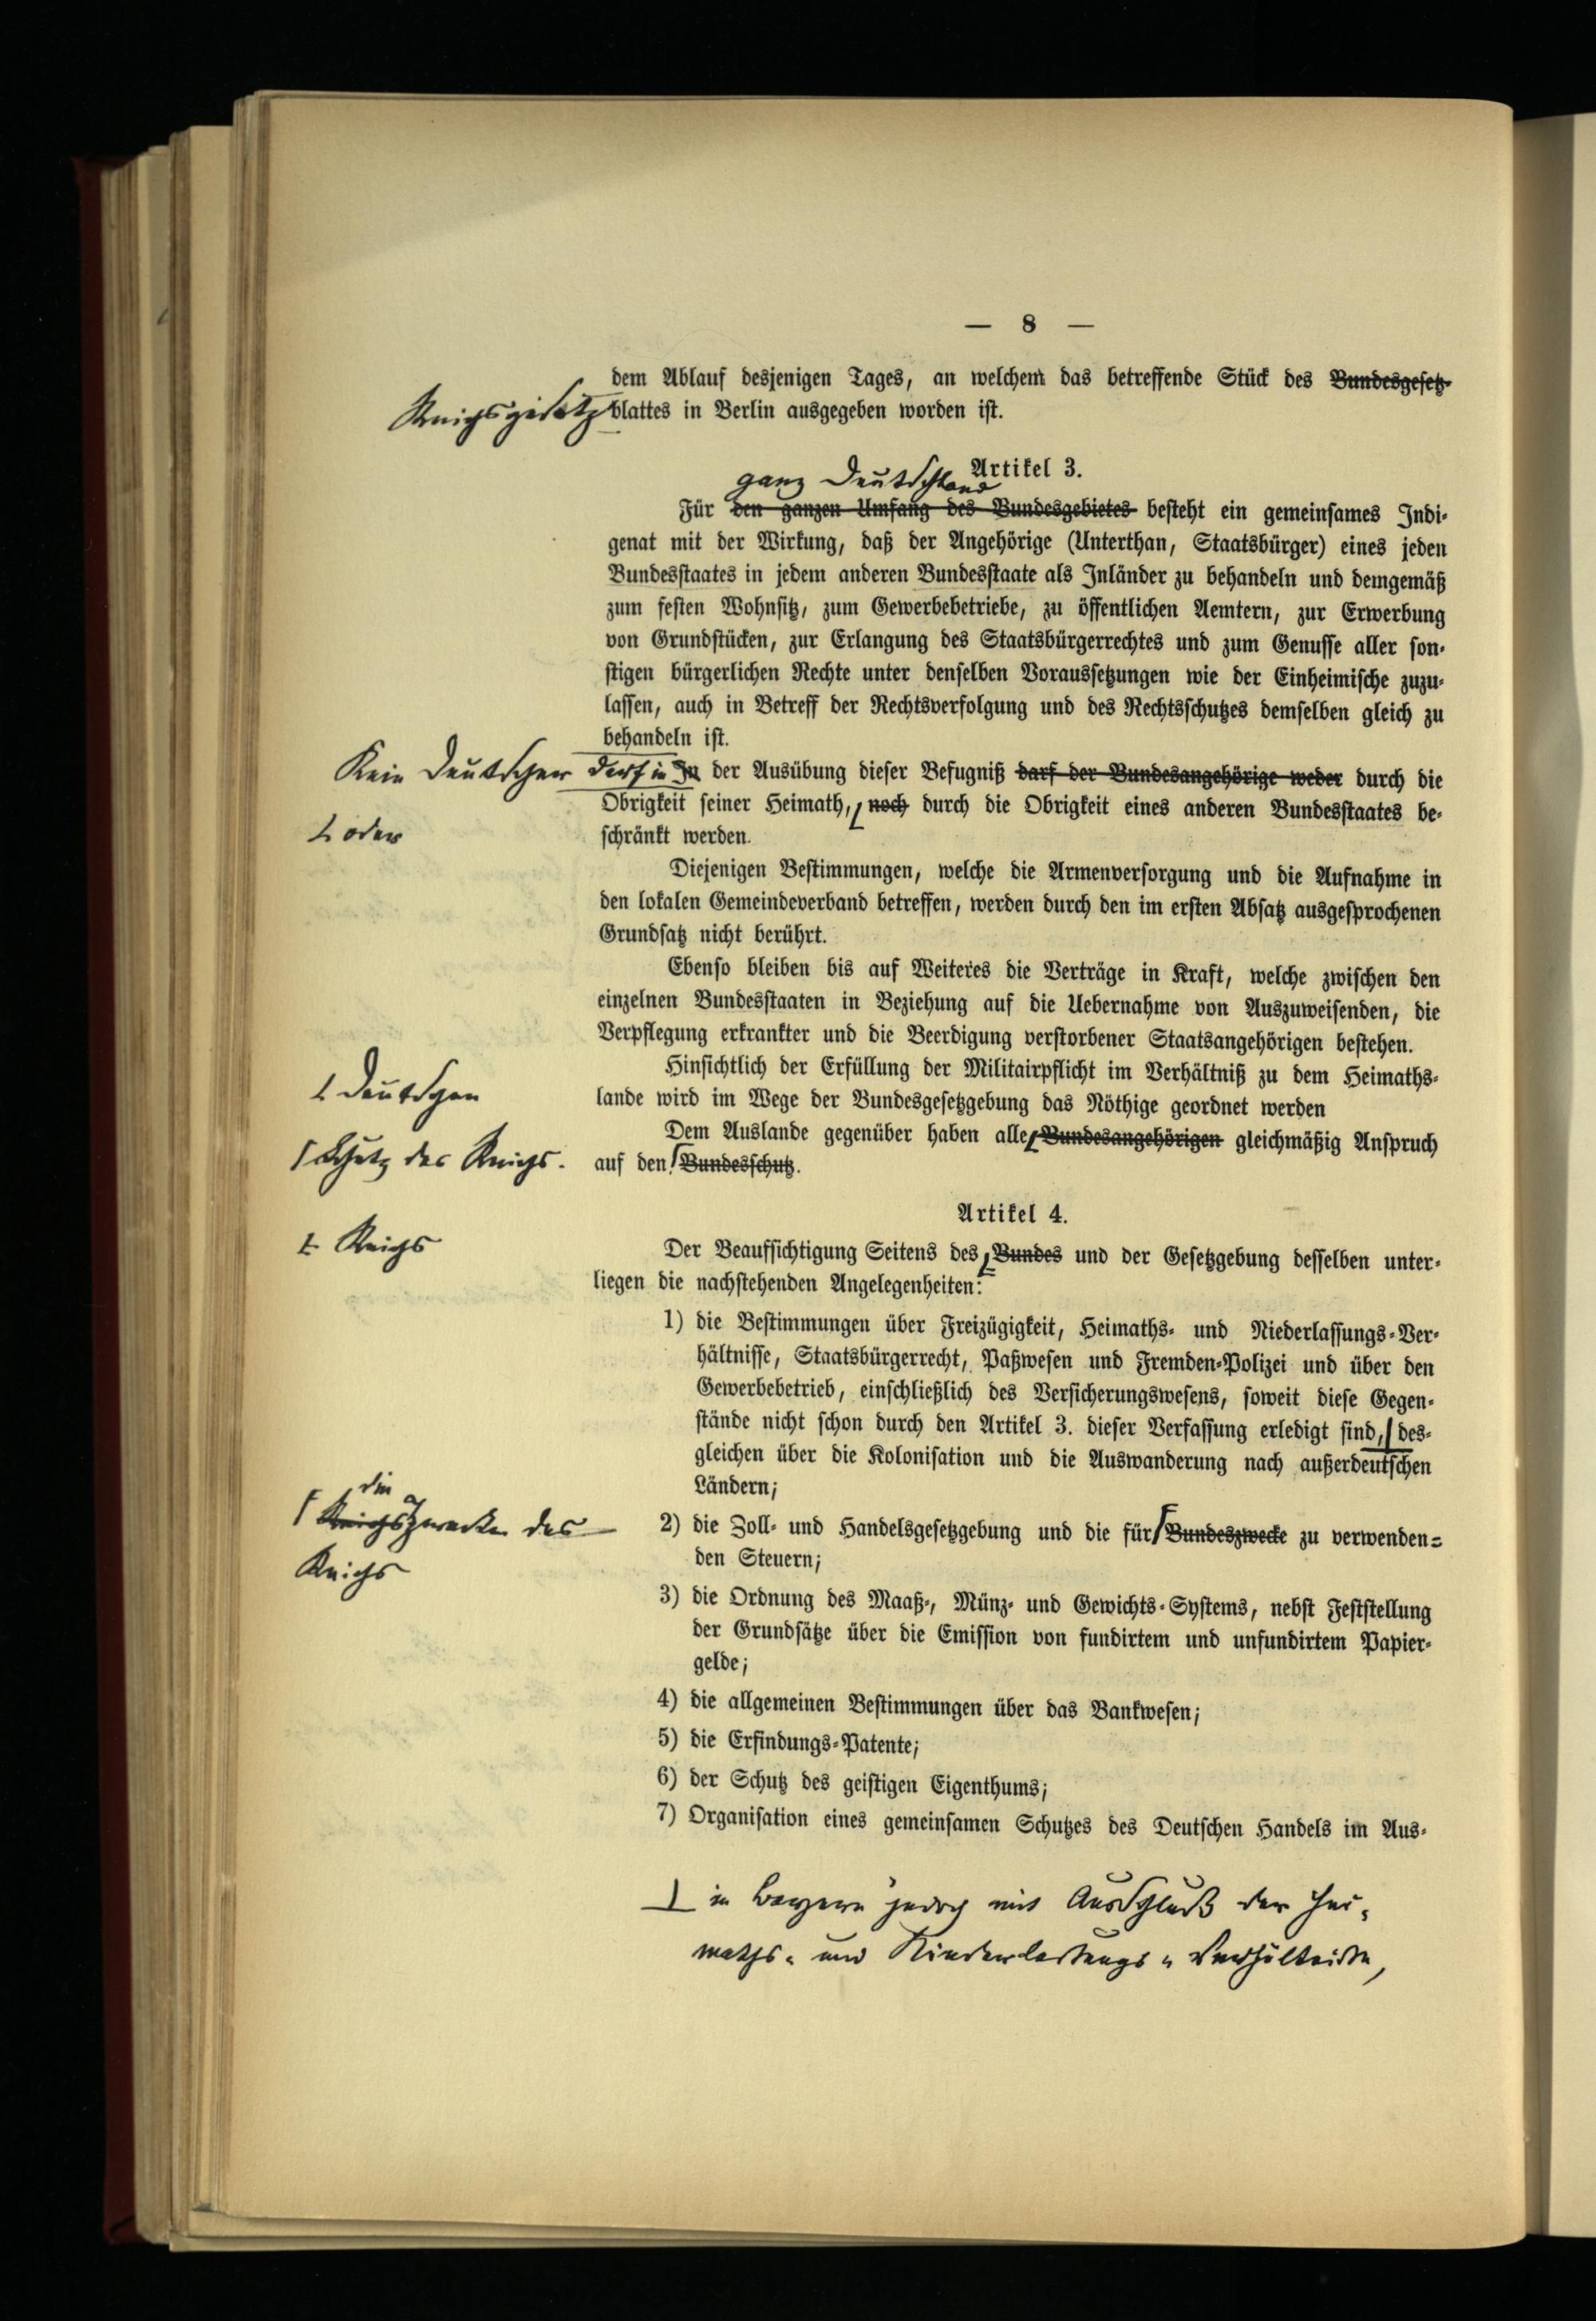 — 8 —
dem Ablauf desjenigen Tages, an welchem das betreffende Stück des Bundesgesetz-
Reichsgesetz blattes in Berlin ausgegeben worden ist.
Artikel 3.
ganz Deutschland
Für den ganzen Umfang des Bundesgebietes besteht ein gemeinsames Indi-
genat mit der Wirkung, daß der Angehörige (Unterthan, Staatsbürger) eines jeden
Bundesstaates in jedem anderen Bundesstaate als Inländer zu behandeln und demgemäß
zum festen Wohnsitz, zum Gewerbebetriebe, zu öffentlichen Aemtern, zur Erwerbung
von Grundstücken, zur Erlangung des Staatsbürgerrechtes und zum Genusse aller son-
stigen bürgerlichen Rechte unter denselben Voraussetzungen wie der Einheimische zuzu-
lassen, auch in Betreff der Rechtsverfolgung und des Rechtsschutzes demselben gleich zu
behandeln ist.
Kein Deutscher darf in In der Ausübung dieser Befugniß darf der Bundesangehörige weder durch die
Obrigkeit seiner Heimath, noch durch die Obrigkeit eines anderen Bundesstaates be-
oder
schränkt werden.
Diejenigen Bestimmungen, welche die Armenversorgung und die Aufnahme in
den lokalen Gemeindeverband betreffen, werden durch den im ersten Absatz ausgesprochenen
Grundsatz nicht berührt.
Ebenso bleiben bis auf Weiteres die Verträge in Kraft, welche zwischen den
einzelnen Bundesstaaten in Beziehung auf die Uebernahme von Auszuweisenden, die
Verpflegung erkrankter und die Beerdigung verstorbener Staatsangehörigen bestehen.
Hinsichtlich der Erfüllung der Militairpflicht im Verhältniß zu dem Heimaths-
lande wird im Wege der Bundesgesetzgebung das Nöthige geordnet werden
Deutschen
Dem Auslande gegenüber haben alle Bundesangehörigen gleichmäßig Anspruch
Schutz des Reichs.
auf den Bundesschutz.
Artikel 4.
Reichs
Der Beaufsichtigung Seitens des Bundes und der Gesetzgebung desselben unter-
liegen die nachstehenden Angelegenheiten:
1) die Bestimmungen über Freizügigkeit, Heimaths- und Niederlassungs-Ver-
hältnisse, Staatsbürgerrecht, Paßwesen und Fremden-Polizei und über den
Gewerbebetrieb, einschließlich des Versicherungswesens, soweit diese Gegen-
stände nicht schon durch den Artikel 3. dieser Verfassung erledigt sind, des-
gleichen über die Kolonisation und die Auswanderung nach außerdeutschen
Ländern;
die
Reichszwecke des
Reichs
2) die Zoll- und Handelsgesetzgebung und die für Bundeszwecke zu verwenden-
den Steuern;
3) die Ordnung des Maaß-, Münz- und Gewichts-Systems, nebst Feststellung
der Grundsätze über die Emission von fundirtem und unfundirtem Papier-
gelde;
4) die allgemeinen Bestimmungen über das Bankwesen;
5) die Erfindungs-Patente;
6) der Schutz des geistigen Eigenthums;
7) Organisation eines gemeinsamen Schutzes des Deutschen Handels im Aus-
in Bayern jedoch mit Ausschluß der Hei-
maths- und Niederlassungs-Verhältnisse,